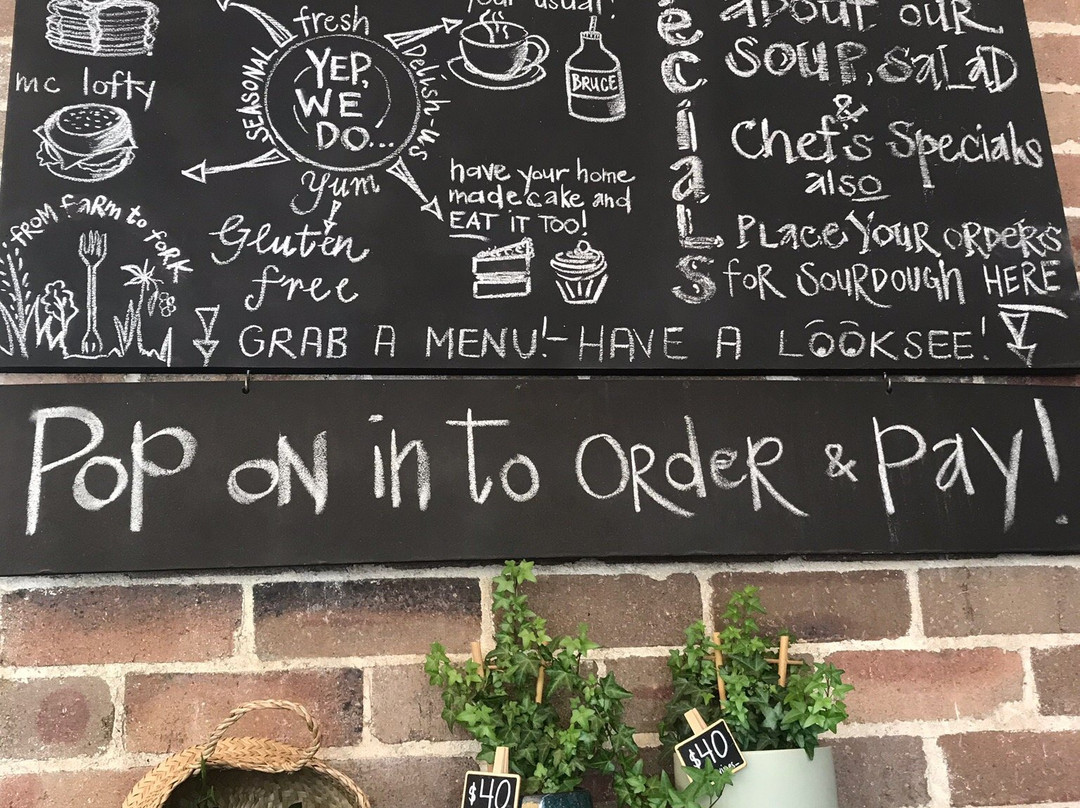 mc lofty
FROM FARM to FORK
fresh
SEASONAL
Delish-us
YEP,
WE
DO...
yum
Gluten
free
your usual!
BRUCE
have your home
made cake and
EAT IT TOO!
eciaLS
about our
SOUP, SaLaD
&
Chef's Specials
also
PLace Your orders
for Sourdough HERE
GRAB A MENU! - HAVE A LOOKSEE!
Pop on in to Order & pay!
$40
$40